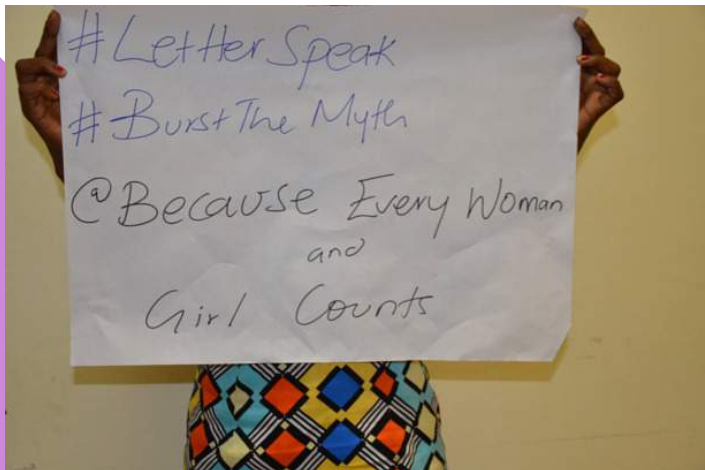 #LetHerSpeak
#BurstTheMyth
@Because Every Woman
and
Girl Counts